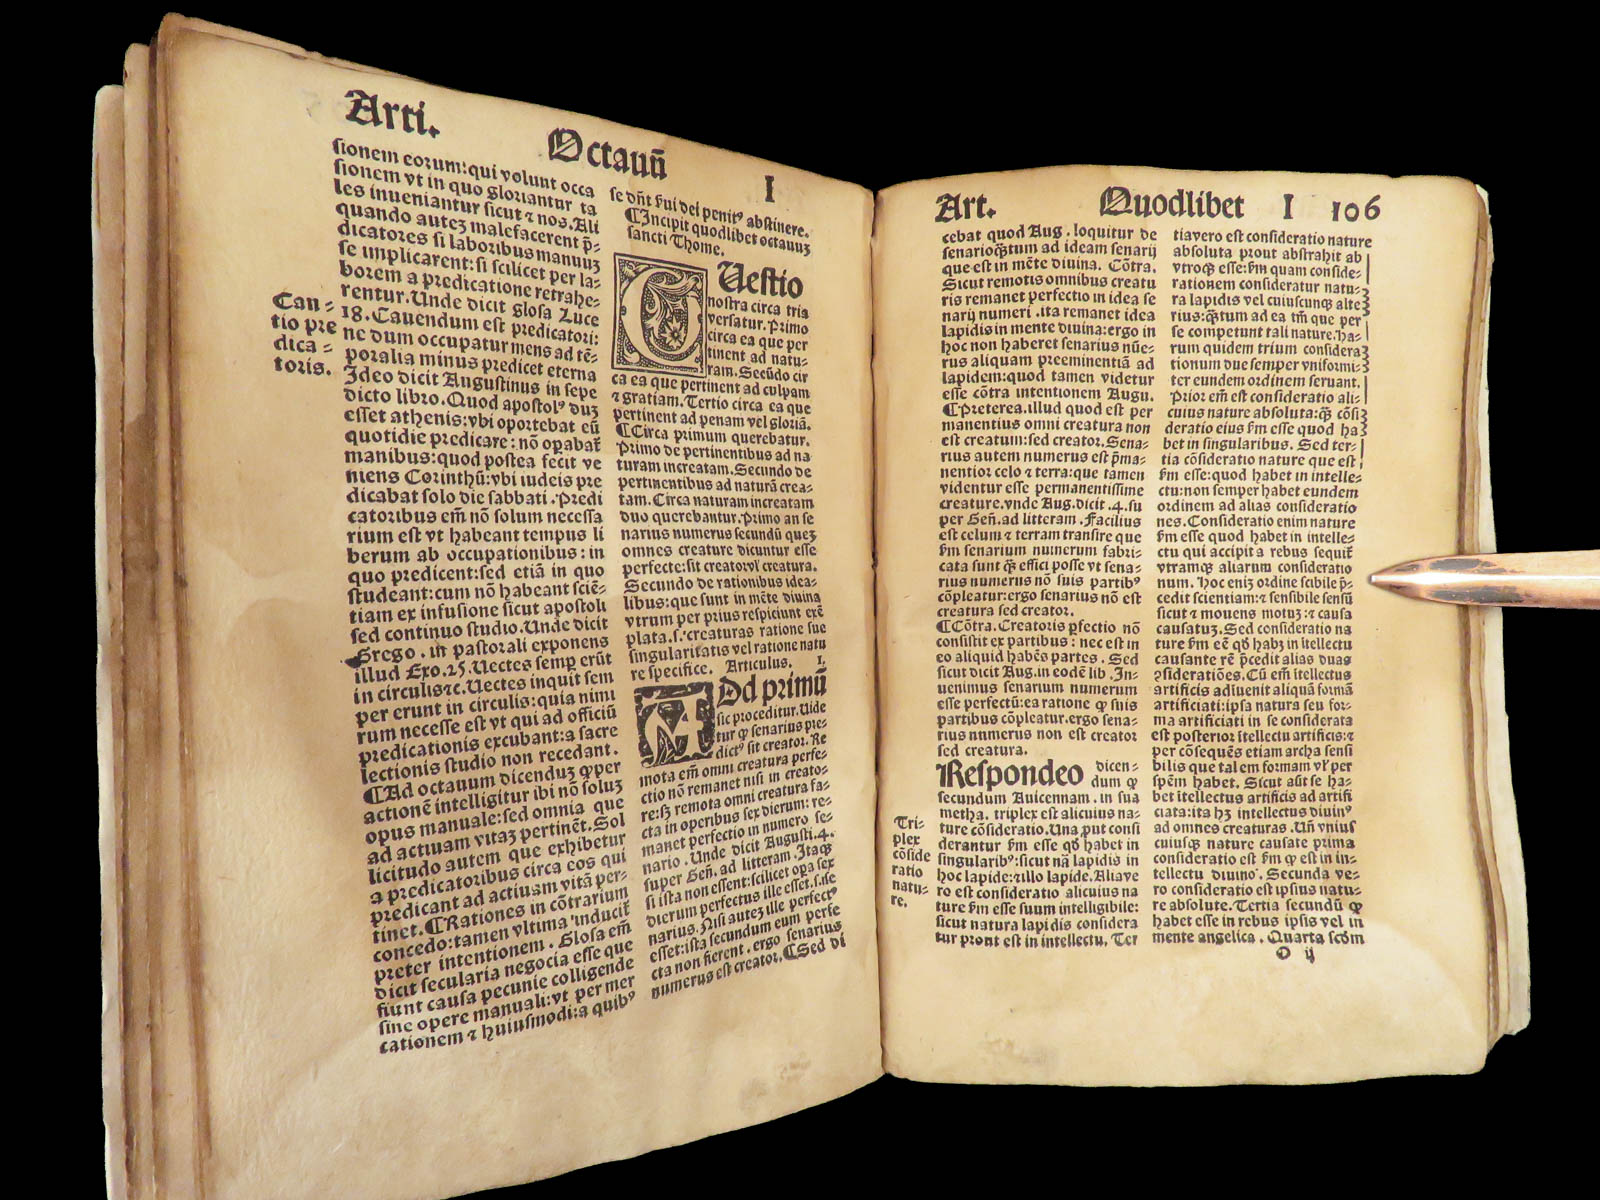 Arti.
Octauũ
I
sionem eorum: qui volunt occa
sionem vt in quo gloriantur ta
les inueniantur sicut ⁊ nos. Ali
quando auteʒ malefacerent p̄-
dicatores si laboribus manuuʒ
se implicarent: si scilicet per la-
borem a predicatione retrahe-
rentur. Unde dicit glosa Luce
18. Cauendum est predicatori:
ne dum occupatur mens ad tē-
poralia minus predicet eterna
Ideo dicit Augustinus in sepe
dicto libro. Quod apostolꝰ duʒ
esset athenis: vbi oportebat eũ
quotidie predicare: nō opabat̃
manibus: quod postea fecit ve
niens Corinthũ: vbi iudeis pre
dicabat solo die sabbati. Predi
catoribus em̃ nō solum necessa
rium est vt habeant tempus li
berum ab occupationibus: in
quo predicent: sed etiā in quo
studeant: cum nō habeant sciē-
tiam ex infusione sicut apostoli
sed continuo studio. Unde dicit
Grego. in pastorali exponens
illud Exo. 25. Uectes semp erũt
in circulis ⁊c. Uectes inquit sem
per erunt in circulis: quia nimi
rum necesse est vt qui ad officiũ
predicationis excubant: a sacre
lectionis studio non recedant.
¶Ad octauum dicenduʒ ꝙ per
actionē intelligitur ibi nō soluʒ
opus manuale: sed omnia que
ad actiuam vitaʒ pertinēt. Sol
licitudo autem que exhibetur
a predicatoribus circa eos qui
predicant ad actiuam vitā per-
tinet. ¶Rationes in cōtrarium
concedo: tamen vltima inducit̃
preter intentionem. Glosa em̃
dicit secularia negocia esse que
fiunt causa pecunie colligende
sine opere manuali: vt per mer
cationem ⁊ huiusmodi: a quibꝰ
Can-
tio pre
dica-
toris.
se dñt ẜui dei penitꝰ abstinere.
¶Incipit quodlibet octauuʒ
sancti Thome.
QUestio
nostra circa tria
versatur. Primo
circa ea que per
tinent ad natu-
ram. Secũdo cir
ca ea que pertinent ad culpam
⁊ gratiam. Tertio circa ea que
pertinent ad penam vel gloriā.
¶Circa primum querebatur.
Primo de pertinentibus ad na
turam increatam. Secundo de
pertinentibus ad naturā crea-
tam. Circa naturam increatam
duo querebantur. Primo an se
narius numerus secundũ queʒ
omnes creature dicuntur esse
perfecte: sit creator vl̃ creatura.
Secundo de rationibus idea-
libus: que sunt in mēte diuina
vtrum per prius respiciunt exē
plata. s. creaturas ratione sue
singularitatis vel ratione natu
re specifice. Articulus. 1.
AD primũ
sic proceditur. Uide
tur ꝙ senarius pre-
dictꝰ sit creator. Re
mota em̃ omni creatura perfe-
ctio nō remanet nisi in creato-
re: sʒ remota omni creatura fa-
cta in operibus sex dierum: re-
manet perfectio in numero se-
nario. Unde dicit Augusti. 4.
super Geñ. ad litteram. Itaqʒ
si ista non essent: scilicet opa sex
dierum perfectus ille esset. s. se
narius. Nisi auteʒ ille perfectꝰ
esset: ista secundum eum perfe
cta non fierent. ergo senarius
numerus est creator. ¶Sed di
Art.
Quodlibet
I
106
cebat quod Aug. loquitur de
senario qʒ̃tum ad ideam senarij
que est in mēte diuina. Cōtra.
Sicut remotis omnibus creatu
ris remanet perfectio in idea se
narij numeri. ita remanet idea
lapidis in mente diuina: ergo in
hoc non haberet senarius nũe-
rus aliquam preeminentiā ad
lapidem: quod tamen videtur
esse cōtra intentionem Augu.
¶Preterea. illud quod est per
manentius omni creatura non
est creatum: sed creator. Sena-
rius autem numerus est p̄ma-
nentior celo ⁊ terra: que tamen
videntur esse permanentissime
creature. vnde Aug. dicit. 4. su
per Geñ. ad litteram. Facilius
est celum ⁊ terram transire que
ẜm senarium numerum fabri-
cata sunt qʒ̃ effici posse vt sena-
rius numerus nō suis partibꝰ
cōpleatur: ergo senarius nō est
creatura sed creator.
¶Cōtra. Creatoris pfectio nō
consistit ex partibus: nec est in
eo aliquid habēs partes. Sed
sicut dicit Aug. in eodē lib. In-
uenimus senarium numerum
esse perfectũ: ea ratione ꝙ suis
partibus cōpleatur. ergo sena-
rius numerus non est creator
sed creatura.
Respondeo dicen-
dum ꝙ
secundum Auicennam. in sua
metha. triplex est alicuius na-
ture cōsideratio. Una put consi
derantur ẜm esse qd̃ habet in
singularibꝰ: sicut nā lapidis in
hoc lapide: ⁊ illo lapide. Alia ve
ro est consideratio alicuius na
ture ẜm esse suum intelligibile:
sicut natura lapidis considera
tur prout est in intellectu. Ter
Tri-
plex
cōside
ratio
natu-
re.
tia vero est consideratio nature
absoluta prout abstrahit ab
vtroqʒ esse: ẜm quam conside-
rationem consideratur natu-
ra lapidis vel cuiuscunqʒ alte
rius: qʒ̃tum ad ea tm̃ que per
se competunt tali nature. ha-
rum quidem trium considera
tionum due semper vniformi-
ter eundem ordinem seruant.
Prior em̃ est consideratio ali-
cuius nature absoluta: qʒ̃ cōsi
deratio eius ẜm esse quod ha
bet in singularibus. Sed ter-
tia cōsideratio nature que est
ẜm esse: quod habet in intelle-
ctu: non semper habet eundem
ordinem ad alias consideratio
nes. Consideratio enim nature
ẜm esse quod habet in intelle-
ctu qui accipit a rebus sequit̃
vtramqʒ aliarum consideratio
num. hoc eniʒ ordine scibile p̄-
cedit scientiam: ⁊ sensibile sensũ
sicut ⁊ mouens motuʒ: ⁊ causa
causatuʒ. Sed consideratio na
ture ẜm eē qd̃ habʒ in itellectu
causante rē p̄cedit alias duas
ꝯsideratiōes. Cũ em̃ itellectus
artificis adiuenit aliquā formā
artificiati: ipsa natura seu for-
ma artificiati in se considerata
est posterior itellectu artificis: ⁊
per cōsequēs etiam archa sensi
bilis que talem formam vl̃ per
spēm habet. Sicut aũt se ha-
bet itellectus artificis ad artifi
ciata: ita hʒ intellectus diuinꝰ
ad omnes creaturas. Uñ vnius
cuiusqʒ nature causate prima
consideratio est ẜm ꝙ est in in-
tellectu diuino. Secunda ve-
ro consideratio est ipsius natu-
re absolute. Tertia secundũ ꝙ
habet esse in rebus ipsis vel in
mente angelica. Quarta scd̃m
O ij